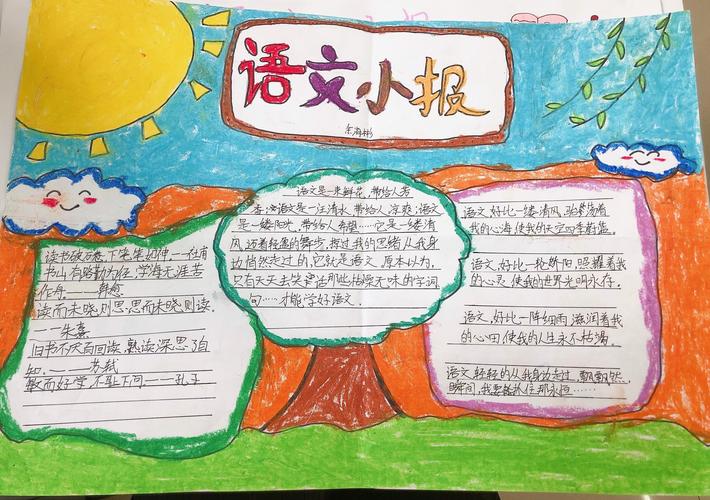 语文小报
余海彬
读书破万卷,下笔如神.一一杜甫
书山有路勤为径,学海无涯苦
作舟.一一韩愈
读而未晓,则思,思而未晓,则读.
一一朱熹
旧书不厌百回读,熟读深思子自
知.一一苏轼
敏而好学,不耻下问.一一孔子
语文是一束鲜花,带给人芳
香;语文是一汪清水,带给人凉爽;语文
是一缕阳光,带给人希望……它是一缕清
风,迈着轻盈的舞步,挥过我的思绪,从我身
边悄然走过的,它就是语文.原本以为,
只有天天去背那些枯燥无味的字词
句……才能学好语文.
语文,好比一缕清风,荡着
我的心海,使我的天空四季蔚蓝。
语文,好比一轮骄阳,照耀着我
的心灵,使我的世界光明永存.
语文,好比一阵细雨,滋润着我
的心田,使我的人生永不枯竭.
语文轻轻的从我身边走过,飘飘然,
瞬间,我要抓住那永恒……